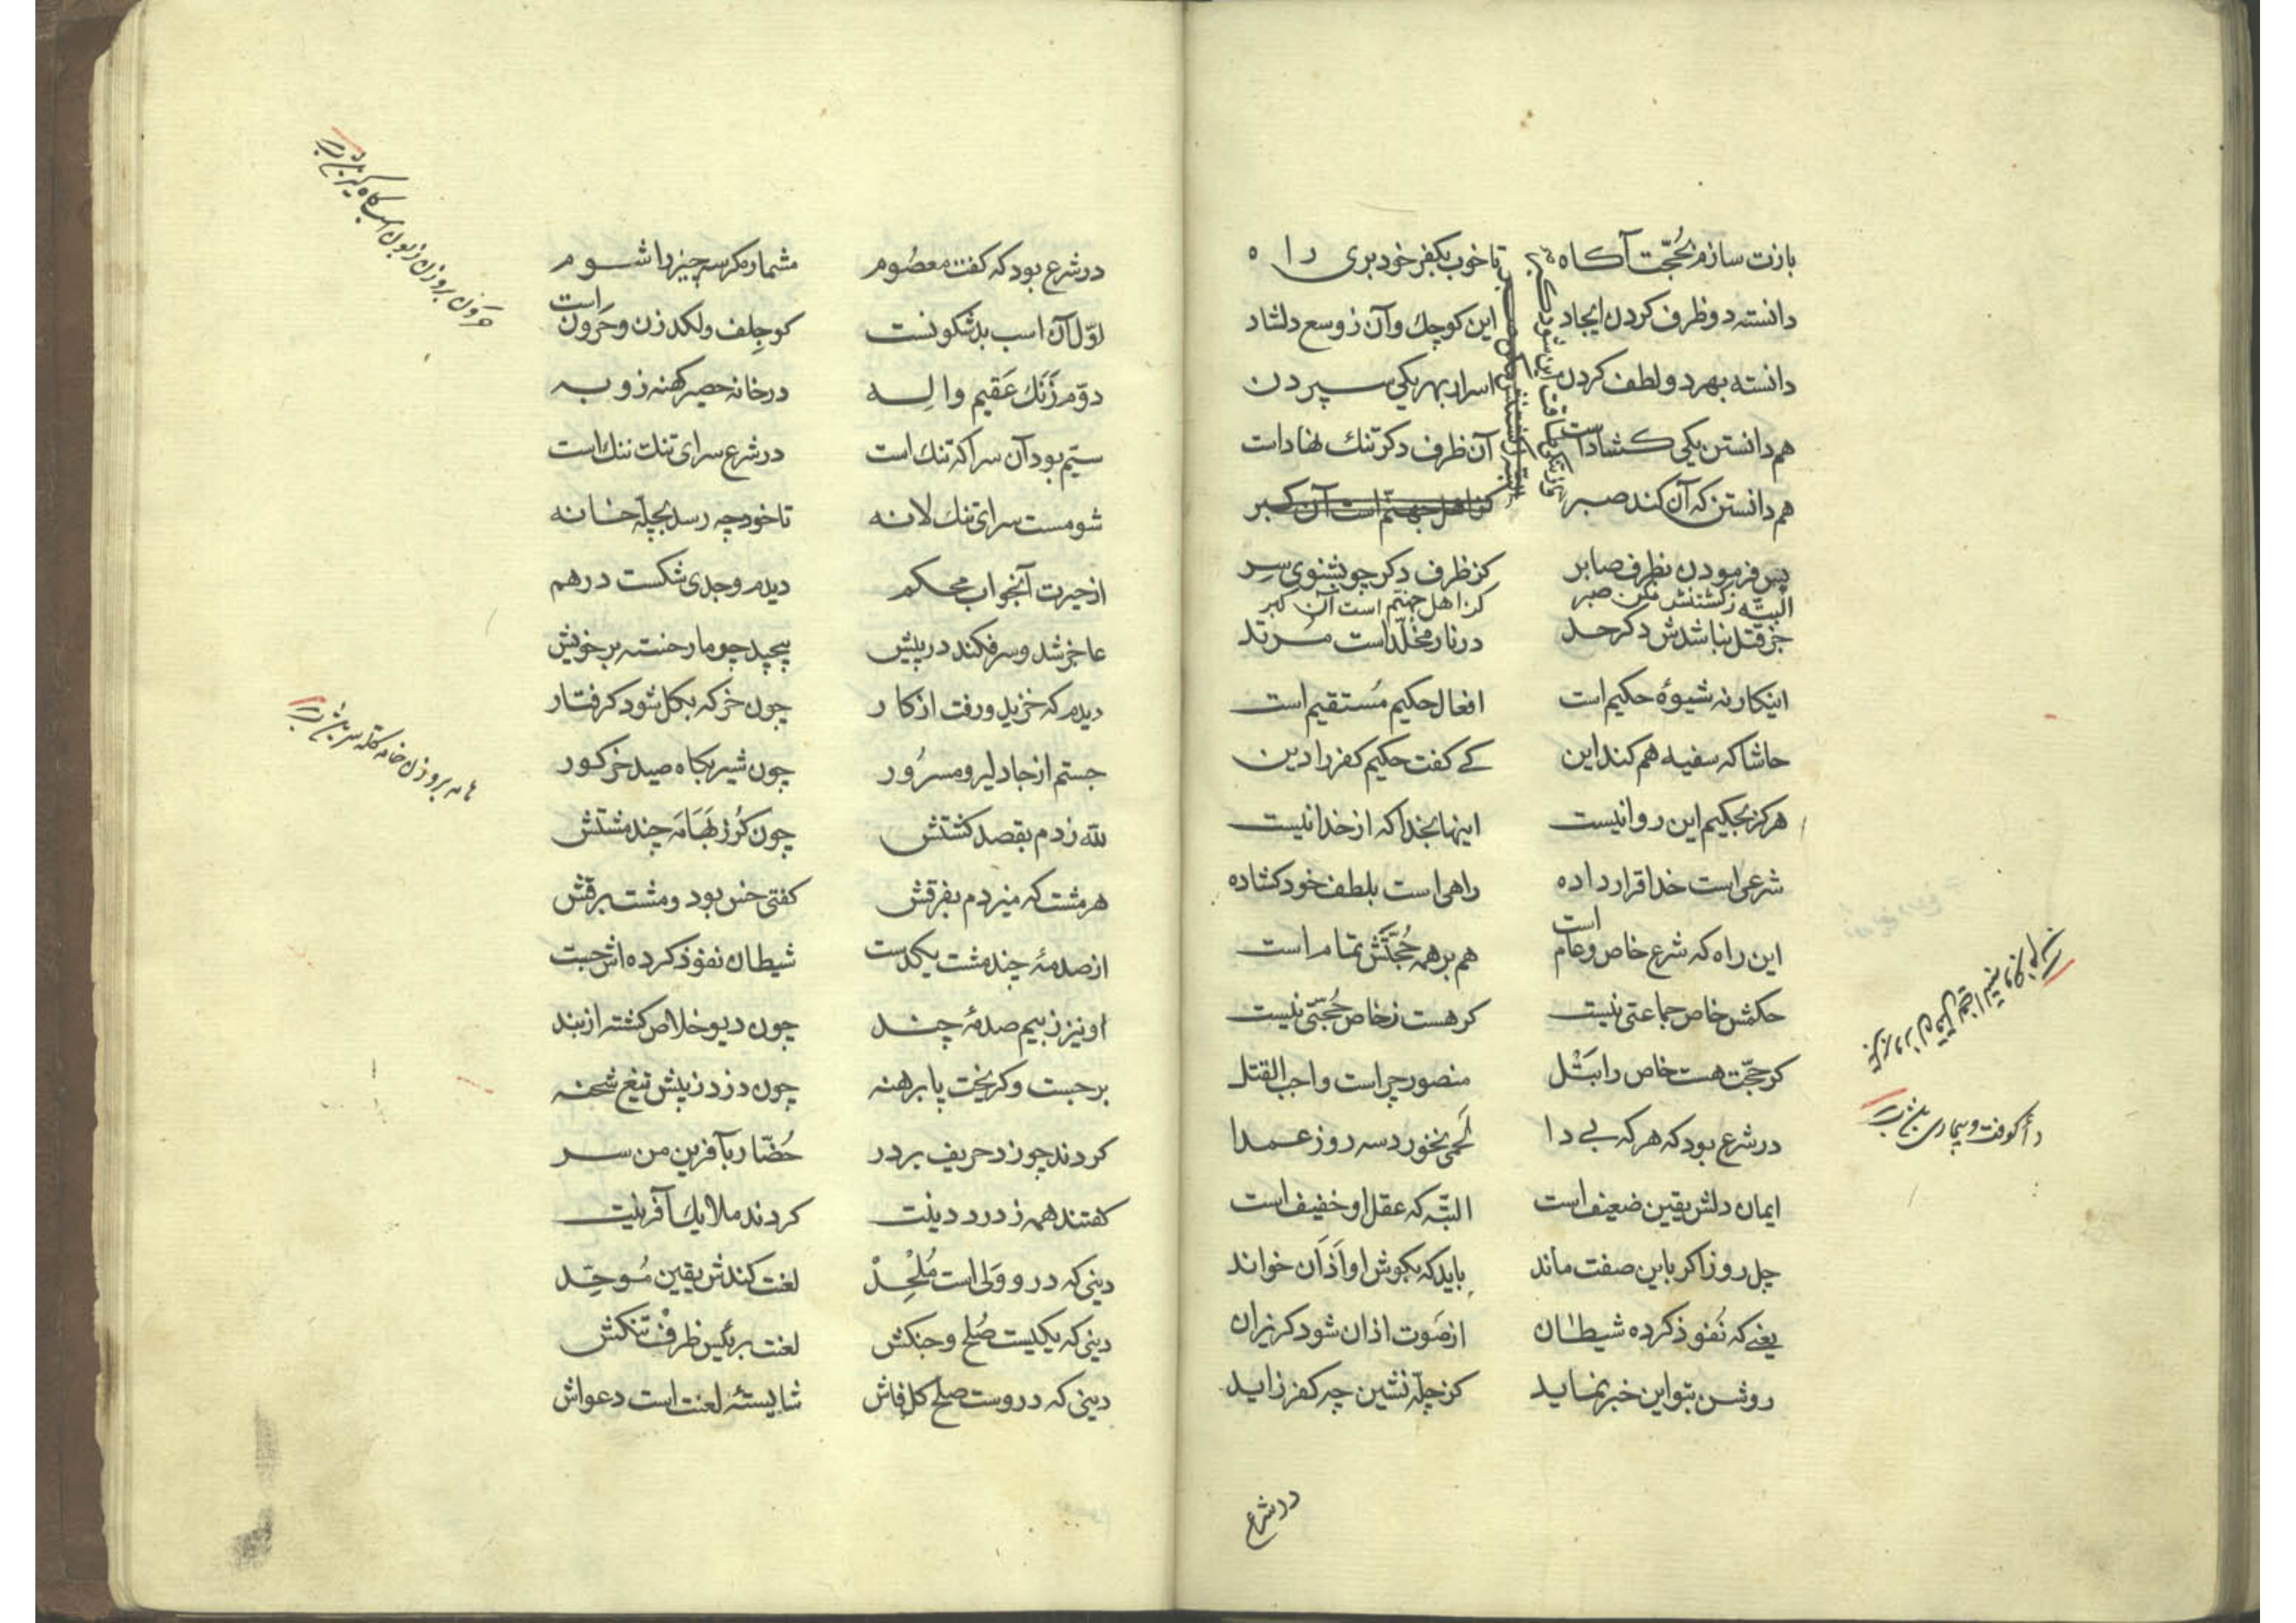 بازت سازم ز حجّت آکاه تا خوب بکفر خود بری راه
دانسته دو ظرف کردن ایجاد این کوچك و آن ز وسع دلشاد
دانسته بهر دو لطف کردن اسرار بهر یکی سپردن
هم دانستن یکی کشاد است آن ظرف دکر تنك نهاد است
هم دانستن که آن کند صبر کز اهل جهنّم است آن کبر
پس فرمودن بظرف صابر کز ظرف دکر چو بشنوی سِر
البتّه ز کشتنش مکن صبر کز اهل جهنّم است آن کبر
جز قتل نباشدش دکر حد در نار مخلّد است مُرتد
اینکار نه شیوۀ حکیم است افعال حکیم مُستقیم است
حاشا که سفیه هم کند این کے کفت حکیم کفر را دین
هرکز بحکیم این روا نیست اینها بخدا که از خدا نیست
شرعی است خدا قرار داده راهی است بلطف خود کشاده
این راه که شرع خاص و عام است هم بر همه حُجّتَش تمام است
حکمش خاص جماعتی نیست کر هست ز خاص حُجّتی نیست
کر حجّت هست خاص را بَسْل منصور چرا است واجب القتل
در شرع بود که هر که بے دا لَحمی نخورد سه روز عمدا
ایمان دلش یقین ضعیف است البتّه که عقل او خفیف است
چل روز اکر باین صفت ماند باید که بکوش او اَذَان خواند
یعنے که نُفوذ کرده شیطان از صَوت اذان شود کریزان
روشن بتو این خبر نماید کز چلّه نشین چه کفر زاید
دأ کوفت و بیماری باشد
در شرع
در شرع بود که کفت معصُوم مشمار مکر سه چیز را شوم
اوّل آن اسب بد شکونست کو جِلف و لکد زن و حَرون است
دوّم زَنَك عَقیم والِه در خانه حصیر کهنه زو به
سیّم بود آن سرا که تنك است در شرع سرای تنك ننك است
شومست سرای تنك لانه تا خود چه رسد بچلّه خانه
از حیرت آنجواب محکم دیدم وجدی شکست درهم
عاجز شد و سر فکند در پیش پیچید چو مار خسته بر خویش
دیدم که خزید و رفت از کار چون خر که بکل شود کرفتار
جستم از جا دلیر و مسرُور چون شیر بکاه صید خر کور
للّه زدم بقصد کشتش چون کُرز بَهامَه چند مشتش
هر مشت که میزدم بفرقش کفتی خس بود و مشت برقش
از صدمۀ چند مشت یکدست شیطان نفوذ کرده اش جست
او نیز ز بیم صدمۀ چند چون دیو خلاص کشته از بند
برجست و کریخت پا برهنه چون دزد ز پیش تیغ شحنه
کردند چو زد حریف بر در حُضّار بآفرین من سر
کفتند همه ز درد دینت کردند ملایك آفرینت
دینی که درو وَلی است مُلْحِدْ لعنت کندش یقین مُوحِّد
دینی که یکیست صُلح و جنکش لعنت بر کیس ظرف تنکش
دینی که دروست صلح کل فاش شایستۀ لعنت است دعواش
حرون بر وزن زبون اسب کاه کیر باشد
هامه بر وزن خامه کلّه سر باشد